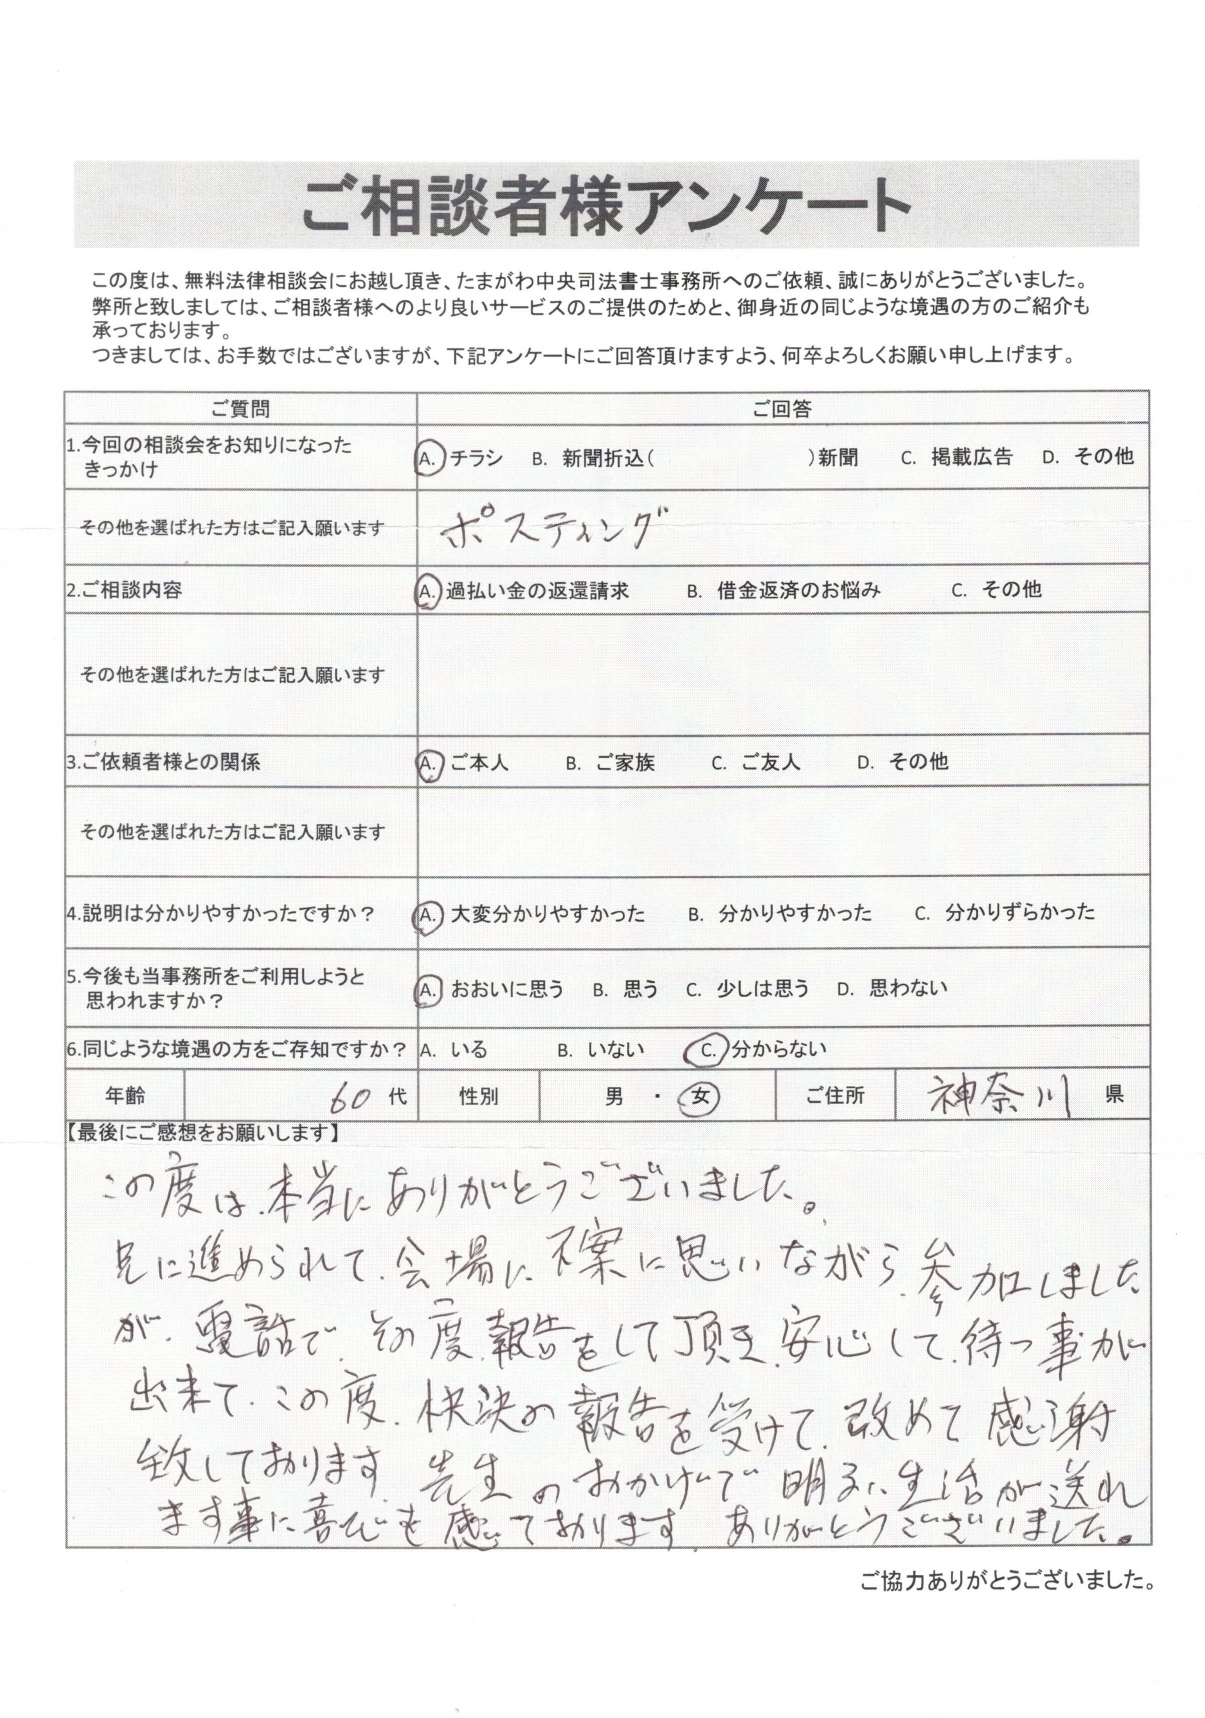 ご相談者様アンケート
この度は、無料法律相談会にお越し頂き、たまがわ中央司法書士事務所へのご依頼、誠にありがとうございました。
弊所と致しましては、ご相談者様へのより良いサービスのご提供のためと、御身近の同じような境遇の方のご紹介も
承っております。
つきましては、お手数ではございますが、下記アンケートにご回答頂けますよう、何卒よろしくお願い申し上げます。
ご質問 ご回答
1.今回の相談会をお知りになった
きっかけ
A. チラシ B. 新聞折込( )新聞 C. 掲載広告 D. その他
その他を選ばれた方はご記入願います ポスティング
2.ご相談内容 A. 過払い金の返還請求 B. 借金返済のお悩み C. その他
その他を選ばれた方はご記入願います
3.ご依頼者様との関係 A. ご本人 B. ご家族 C. ご友人 D. その他
その他を選ばれた方はご記入願います
4.説明は分かりやすかったですか? A. 大変分かりやすかった B. 分かりやすかった C. 分かりずらかった
5.今後も当事務所をご利用しようと
思われますか?
A. おおいに思う B. 思う C. 少しは思う D. 思わない
6.同じような境遇の方をご存知ですか? A. いる B. いない C. 分からない
年齢 60 代 性別 男 ・ 女 ご住所 神奈川 県
【最後にご感想をお願いします】
この度は、本当にありがとうございました。
兄に進められて、会場に不案に思いながら、参加しました
が、電話で、その度、報告をして頂き、安心して、待つ事が
出来て、この度、快決の報告を受けて、改めて感謝
致しております。先生のおかげで明るい生活が送れ
ます事に喜びを感じております。ありがとうございました。
ご協力ありがとうございました。